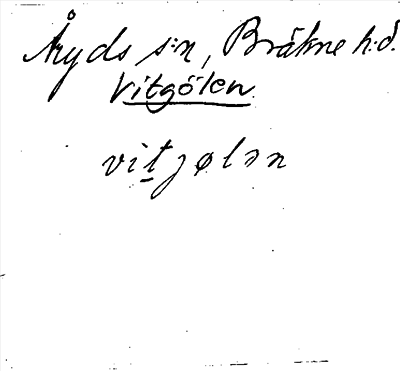 Åryds s:n, Bräkne h:d.
Vitgölen
vitjølən